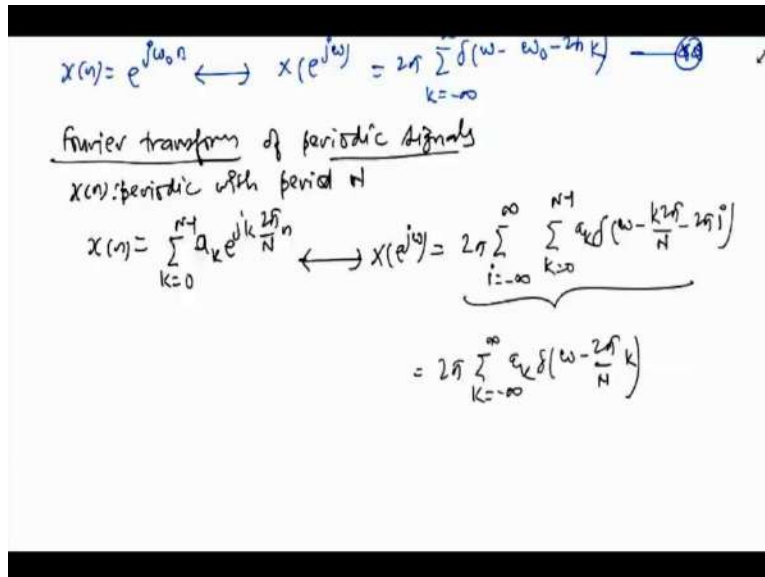 x(n) = e^{jω₀n} ⟷ X(e^{jω}) = 2π ∑_{k=-∞}^{∞} δ(ω - ω₀ - 2πk) —— (**)
Fourier transform of periodic signals
x(n): periodic with period N
x(n) = ∑_{k=0}^{N-1} a_k e^{jk(2π/N)n} ⟷ X(e^{jω}) = 2π ∑_{i=-∞}^{∞} ∑_{k=0}^{N-1} a_k δ(ω - k2π/N - 2πi)
= 2π ∑_{k=-∞}^{∞} a_k δ(ω - (2π/N)k)